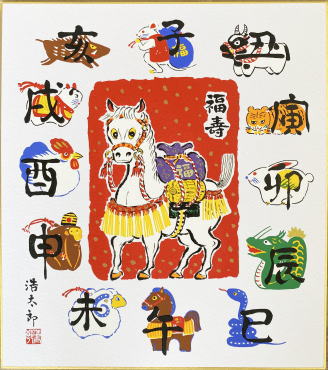 子
丑
寅
卯
辰
巳
午
未
申
酉
戌
亥
福
福壽
浩太郎